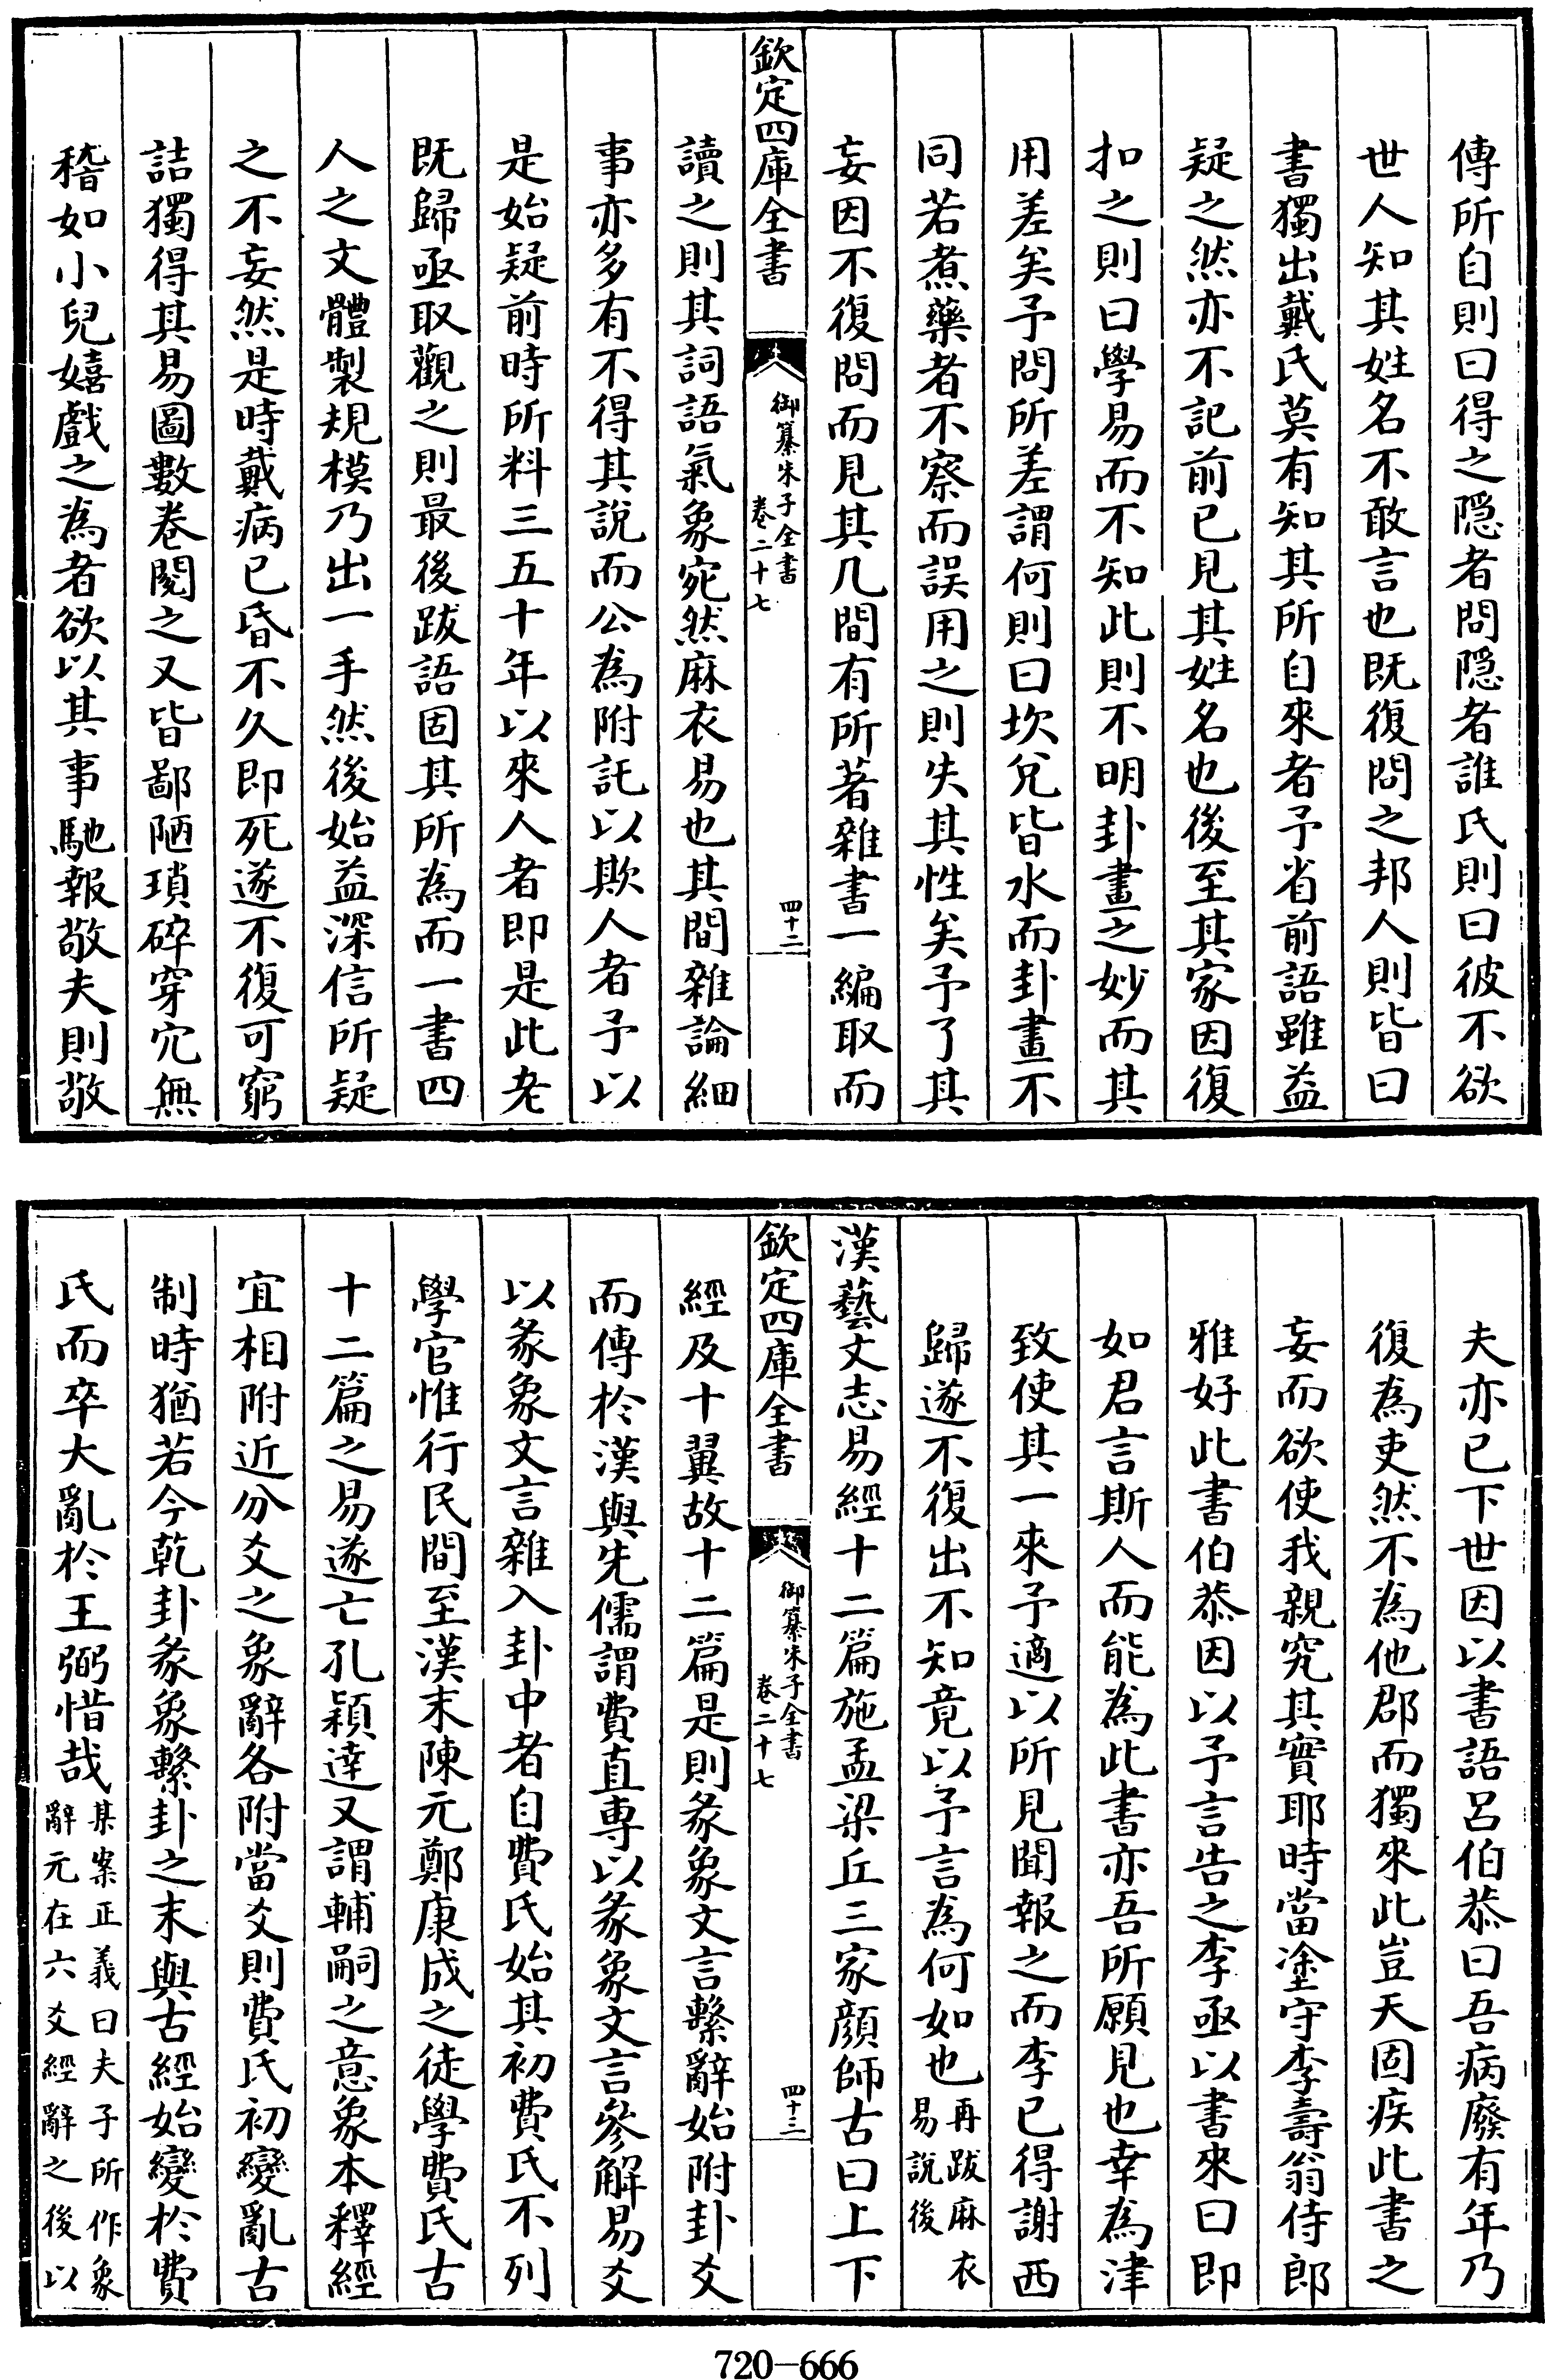 傳所自則曰得之隠者問隠者誰氏則曰彼不欲
世人知其姓名不敢言也既復問之邦人則皆曰
書獨出戴氏莫有知其所自來者予省前語雖益
疑之然亦不記前已見其姓名也後至其家因復
扣之則曰學易而不知此則不明卦畫之妙而其
用差矣予問所差謂何則曰坎兌皆水而卦畫不
同若煮藥者不察而誤用之則失其性矣予了其
妄因不復問而見其几間有所著雜書一編取而
欽定四庫全書
御纂朱子全書
卷二十七
四十二
讀之則其詞語氣象宛然麻衣易也其間雜論細
事亦多有不得其說而公為附託以欺人者予以
是始疑前時所料三五十年以來人者即是此老
既歸亟取觀之則最後跋語固其所為而一書四
人之文體製規模乃出一手然後始益深信所疑
之不妄然是時戴病已昏不久即死遂不復可窮
詰獨得其易圖數卷閱之又皆鄙陋瑣碎穿穴無
稽如小兒嬉戲之為者欲以其事馳報敬夫則敬
夫亦已下世因以書語呂伯恭曰吾病廢有年乃
復為吏然不為他郡而獨來此豈天固疾此書之
妄而欲使我親究其實耶時當塗守李壽翁侍郎
雅好此書伯恭因以予言告之李亟以書來曰即
如君言斯人而能為此書亦吾所願見也幸為津
致使其一來予適以所見聞報之而李已得謝西
歸遂不復出不知竟以予言為何如也再跋麻衣
易說後
漢藝文志易經十二篇施孟梁丘三家顏師古曰上下
欽定四庫全書
御纂朱子全書
卷二十七
四十三
經及十翼故十二篇是則彖象文言繫辭始附卦爻
而傳於漢與先儒謂費直專以彖象文言參解易爻
以彖象文言雜入卦中者自費氏始其初費氏不列
學官惟行民間至漢末陳元鄭康成之徒學費氏古
十二篇之易遂亡孔穎達又謂輔嗣之意象本釋經
宜相附近分爻之象辭各附當爻則費氏初變亂古
制時猶若今乾卦彖象繫卦之末與古經始變於費
氏而卒大亂於王弼惜哉某案正義曰夫子所作象
辭元在六爻經辭之後以
720-666